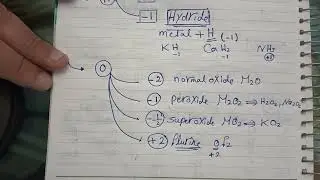 -1 Hydride
metal + H (-1)
KH CaH2 NH3
-1 -1 +1
O
-2 normal oxide M2O
-1 peroxide M2O2 ⇒ H2O2, Na2O2
-1/2 superoxide MO2 ⇒ KO2
+2 flurine OF2
+2